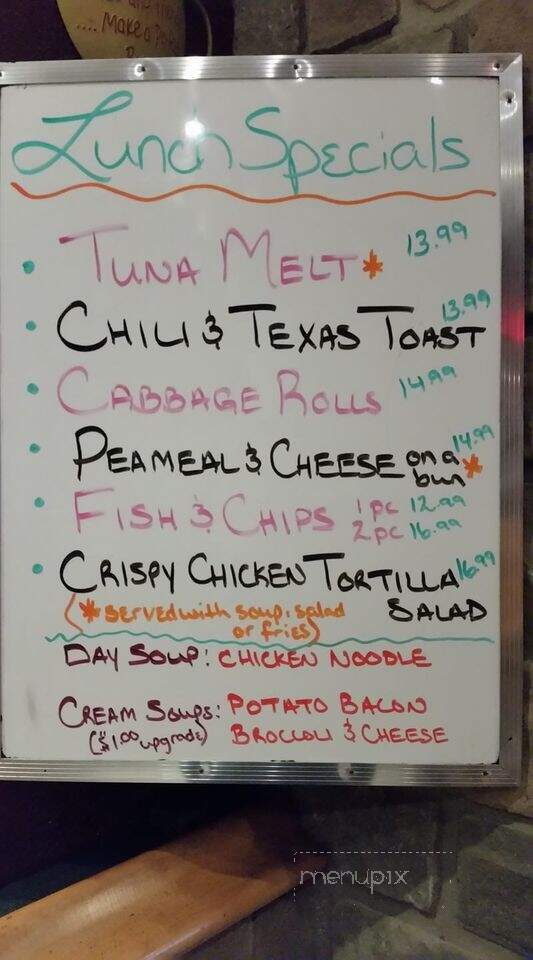 .... Make a
Lunch Specials
• TUNA MELT* 13.99
• CHILI & TEXAS TOAST 13.99
• CABBAGE ROLLS 14.99
• PEAMEAL & CHEESE on a bun* 14.99
• FISH & CHIPS 1pc 12.99
2pc 16.99
• CRISPY CHICKEN TORTILLA SALAD 16.99
(* served with soup, salad
or fries)
DAY SOUP: CHICKEN NOODLE
CREAM SOUPS: POTATO BACON
($1.00 upgrade) BROCCOLI & CHEESE
menupix